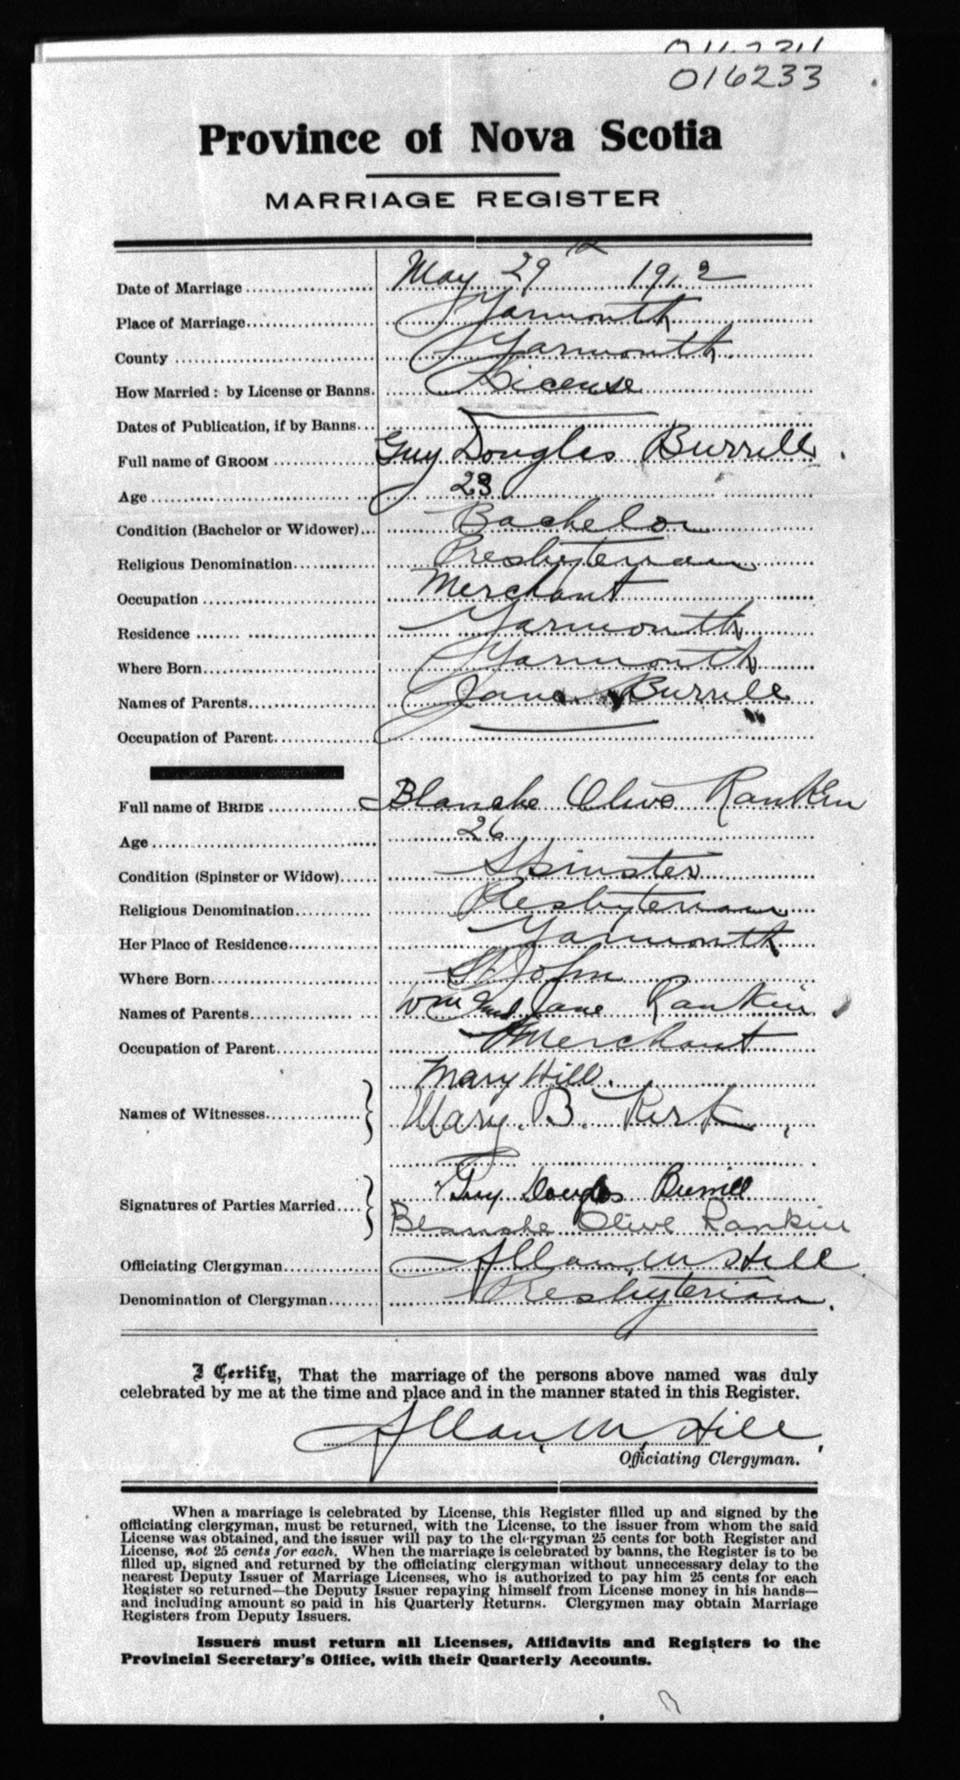 016233
Province of Nova Scotia
MARRIAGE REGISTER
Date of Marriage May 29th 1912
Place of Marriage Yarmouth
County Yarmouth
How Married: by License or Banns. License
Dates of Publication, if by Banns
Full name of GROOM Guy Douglas Burrill
Age 23
Condition (Bachelor or Widower) Bachelor
Religious Denomination Presbyterian
Occupation Merchant
Residence Yarmouth
Where Born Yarmouth
Names of Parents Burrill
Occupation of Parent
Full name of BRIDE Blanche Olive Rankin
Age 26
Condition (Spinster or Widow) Spinster
Religious Denomination Presbyterian
Her Place of Residence Yarmouth
Where Born St. John
Names of Parents Wm and Jane Rankin
Occupation of Parent Merchant
Mary Hill.
Names of Witnesses Mary. B. Kirk
Guy Douglas Burrill
Signatures of Parties Married
Blanche Olive Rankin
Officiating Clergyman Allan. M Hill
Denomination of Clergyman Presbyterian.
I Certify, That the marriage of the persons above named was duly
celebrated by me at the time and place and in the manner stated in this Register.
Allan. M. Hill.
Officiating Clergyman.
When a marriage is celebrated by License, this Register filled up and signed by the
officiating clergyman, must be returned, with the License, to the issuer from whom the said
License was obtained, and the issuer will pay to the clergyman 25 cents for both Register and
License, not 25 cents for each. When the marriage is celebrated by banns, the Register is to be
filled up, signed and returned by the officiating clergyman without unnecessary delay to the
nearest Deputy Issuer of Marriage Licenses, who is authorized to pay him 25 cents for each
Register so returned—the Deputy Issuer repaying himself from License money in his hands—
and including amount so paid in his Quarterly Returns. Clergymen may obtain Marriage
Registers from Deputy Issuers.
Issuers must return all Licenses, Affidavits and Registers to the
Provincial Secretary's Office, with their Quarterly Accounts.